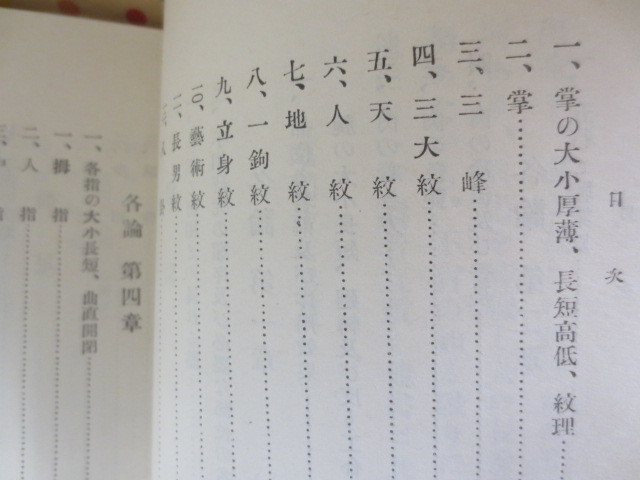 目次
一、掌の大小厚薄、長短高低、紋理
二、掌
三、三峰
四、三大紋
五、天紋
六、人紋
七、地紋
八、一鉤紋
九、立身紋
一〇、藝術紋
一一、長男紋
各論 第四章
一、各指の大小長短、曲直開閉
一、拇指
二、人指